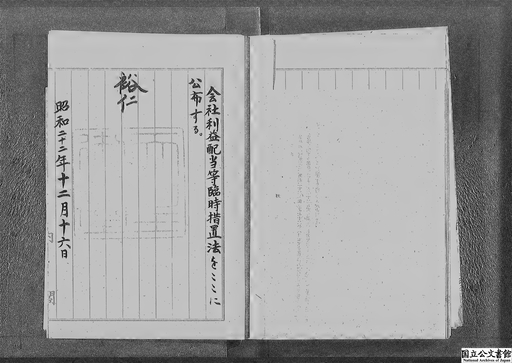 会社利益配当等臨時措置法をここに
公布する。
裕仁
昭和二十二年十二月十六日
内閣
国立公文書館
National Archives of Japan